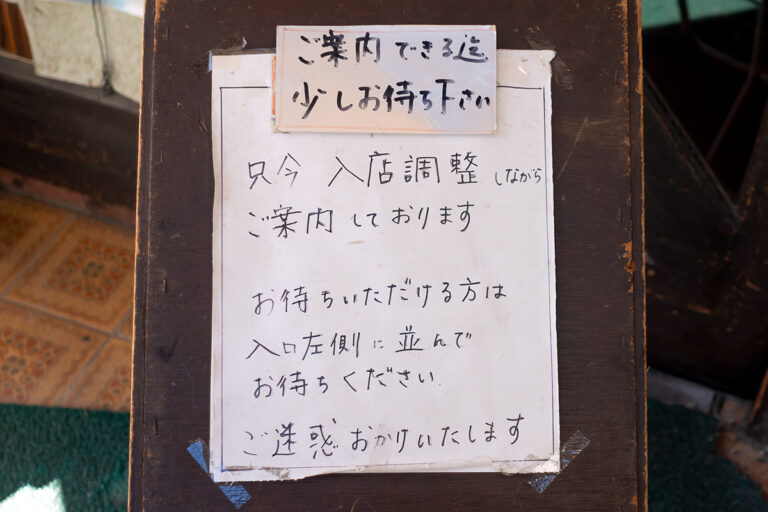 ご案内できる迄
少しお待ち下さい
只今 入店調整しながら
ご案内しております
お待ちいただける方は
入口左側に並んで
お待ちください
ご迷惑おかけいたします